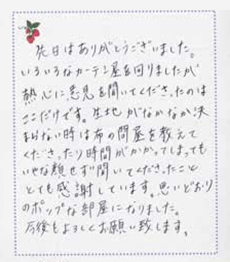 先日はありがとうございました。
いろいろなカーテン屋を回りましたが
熱心に意見を聞いてくださったのは
ここだけです。生地がなかなか決
まらない時は布の問屋を教えて
くださったり時間がかかってしまっても
いやな顔せず聞いてくださったこと
とても感謝しています。思いどおり
のポップな部屋になりました。
今後もよろしくお願い致します。